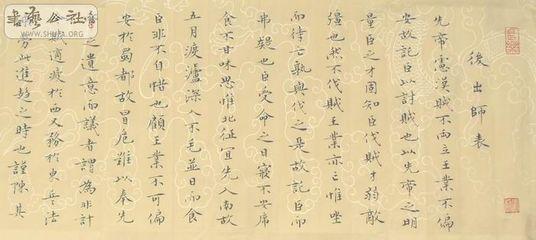 後出師表
先帝慮漢賊不两立王業不偏
安故託臣以討賊也以先帝之明
量臣之才固知臣伐賊才弱敵
彊也然不伐賊王業亦亡惟坐
而待亡孰與伐之是故託臣而
弗疑也臣受命之日寢不安席
食不甘味思惟北征宜先入南故
五月渡瀘深入不毛並日而食
臣非不自惜也顧王業不可偏
安於蜀都故冒危難以奉先
之遺意而議者謂為非計
賊適疲於西又務於東兵法
勞此進趨之時也謹陳其
書藝公社
www.shufa.org